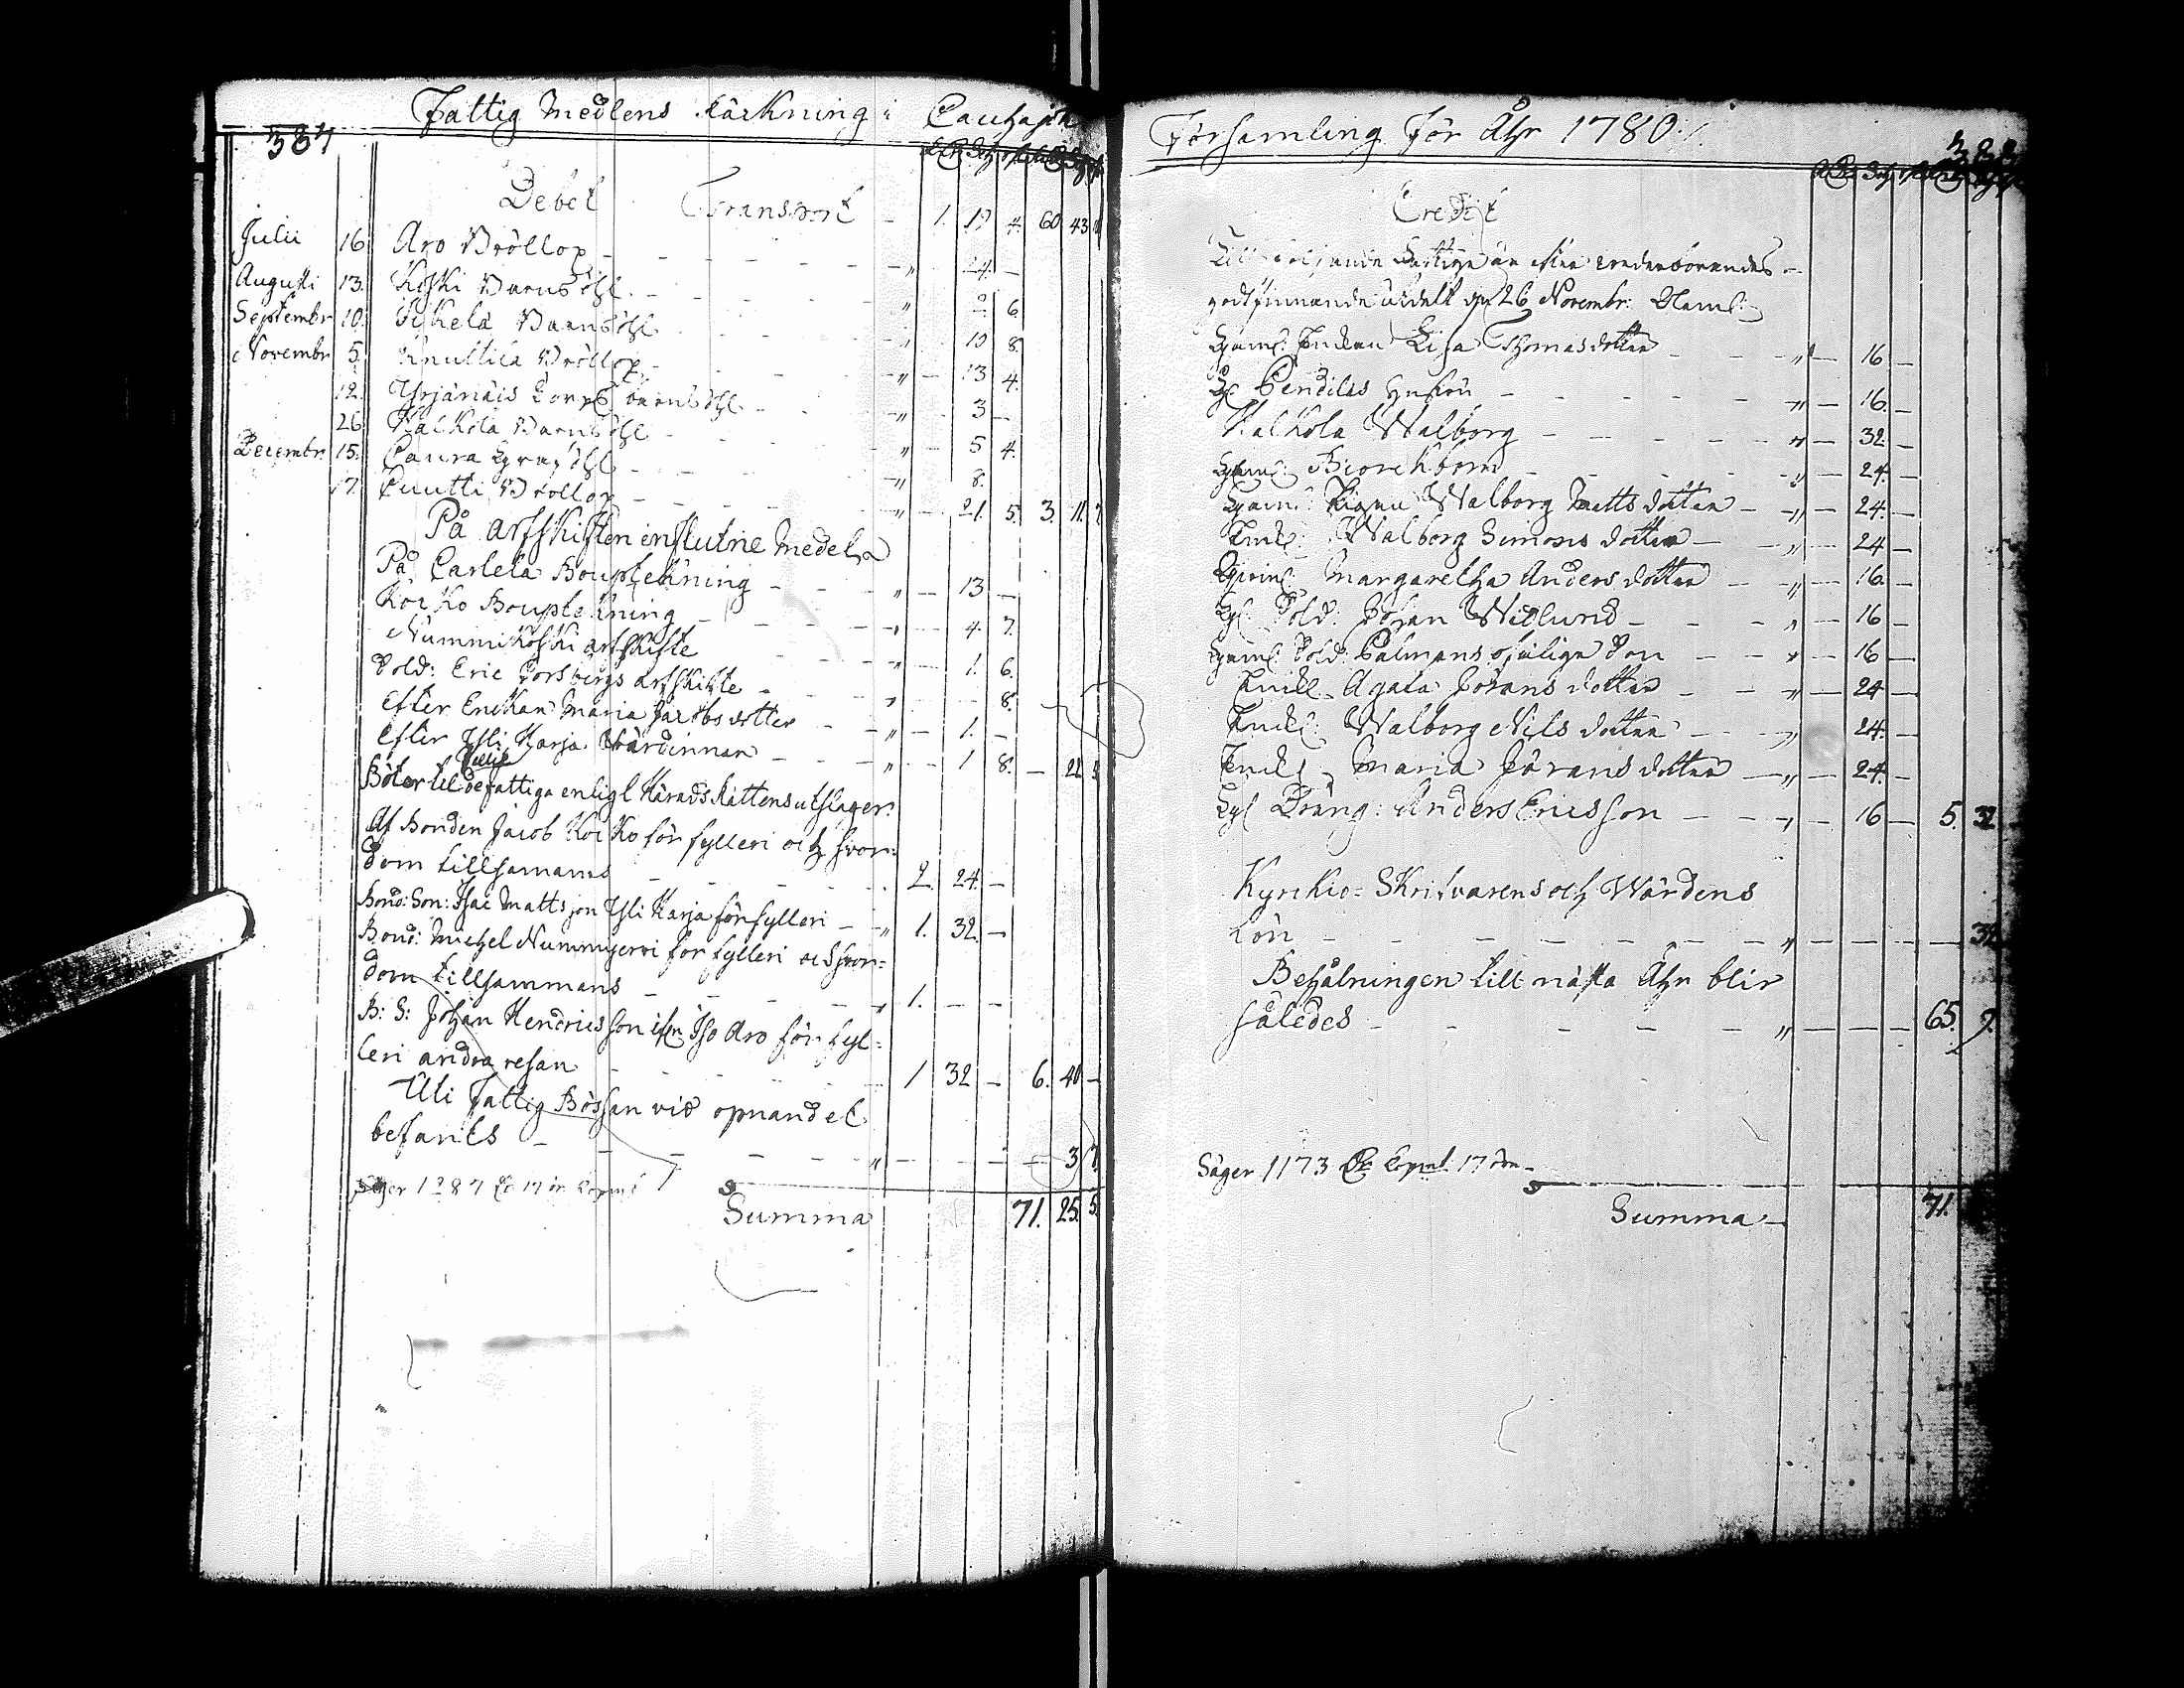 Fattig Medlens Räkning i Cauhajoki
387
Debet Transport - 1. 19 4. 60. 43
Julii 16 Aro Bröllop - " - 24. -
Augusti 13. Koski Barns öhl. - " 2 6.
Septembr 10. Ickelä Barns öhl " 10 8.
Novembr 5. Knuttila Bröllop. " - 13 4.
12. Yrjänäis Torp barns öhl " 3 -
26 Kalkola Barns öhl - " - 5 4.
Decembr. 15. Caura Graföhl - " 8.
17. Luutti Bröllop - " - 21. 5. 3. 11.
På arfskiften influtne Medel
På Carlela Bouptekning - " - 13 -
Korko Bouptekning - " 4. 7.
Nummikoski arfskifte " 1. 6.
Sold: Eric Forsbergs arfskifte - " 8.
Efter Enckan Maria Jacobsdotter - " - 1. -
Efter Yli Harja Wärdinnan - " - 1 8. - 22
Böter til de fattiga enligt Härads Rättens utslager.
Af Bonden Jacob Korko för fylleri och svor=
dom tillsamans - 2. 24. -
Bond: Son: Isac Mattsson Yli Harja för fylleri - " 1. 32. -
Bond: Michel Nummijervi för fylleri och svor=
dom tillsammans - " 1. - -
B: S: Johan Hendricsson ifrn Iso Aro för fyl=
leri andra resan - 1 32 - 6. 40 -
Uti Fattig Bössan vid öpnandet
befants - " - - - - 3
Säger 1287 17 ör Kopmt
Summa 71. 25. 5.
Församling För Åhr 1780.
Credit
Till följande Fattige är efter vederbörandes
godtfinnande utdelt d. 26 Novembr:
Enckan Lisa Thomasdotter - " - 16 -
Pendilas Hustru - " - 16. -
Kalkola Walborg - " - 32 -
Biorckbom - " - 24. -
Pigan Walborg Matts dotter - " - 24. -
Enk: Walborg Simons dotter - " - 24 -
Margaretha Anders dotter - " - 16. -
Sold: Johan Widlund - " - 16 -
Sold: Palmans ofälige Son - " - 16 -
Enkl. Agata Jörans dotter - " - 24 -
Enkl: Walborg Nils dotter - " 24. -
Enkl. Maria Jörans dotter - " - 24. -
Dräng: Anders Ericsson - " - 16 - 5. 32
Kyrckio=Skrifvarens och Wärdens
Lön - " - - - - 32
Behålningen till nästa Åhr blir
således - " - - - 65. 9.
Säger 1173 Kopmt. 17 ör -
Summa - 71.